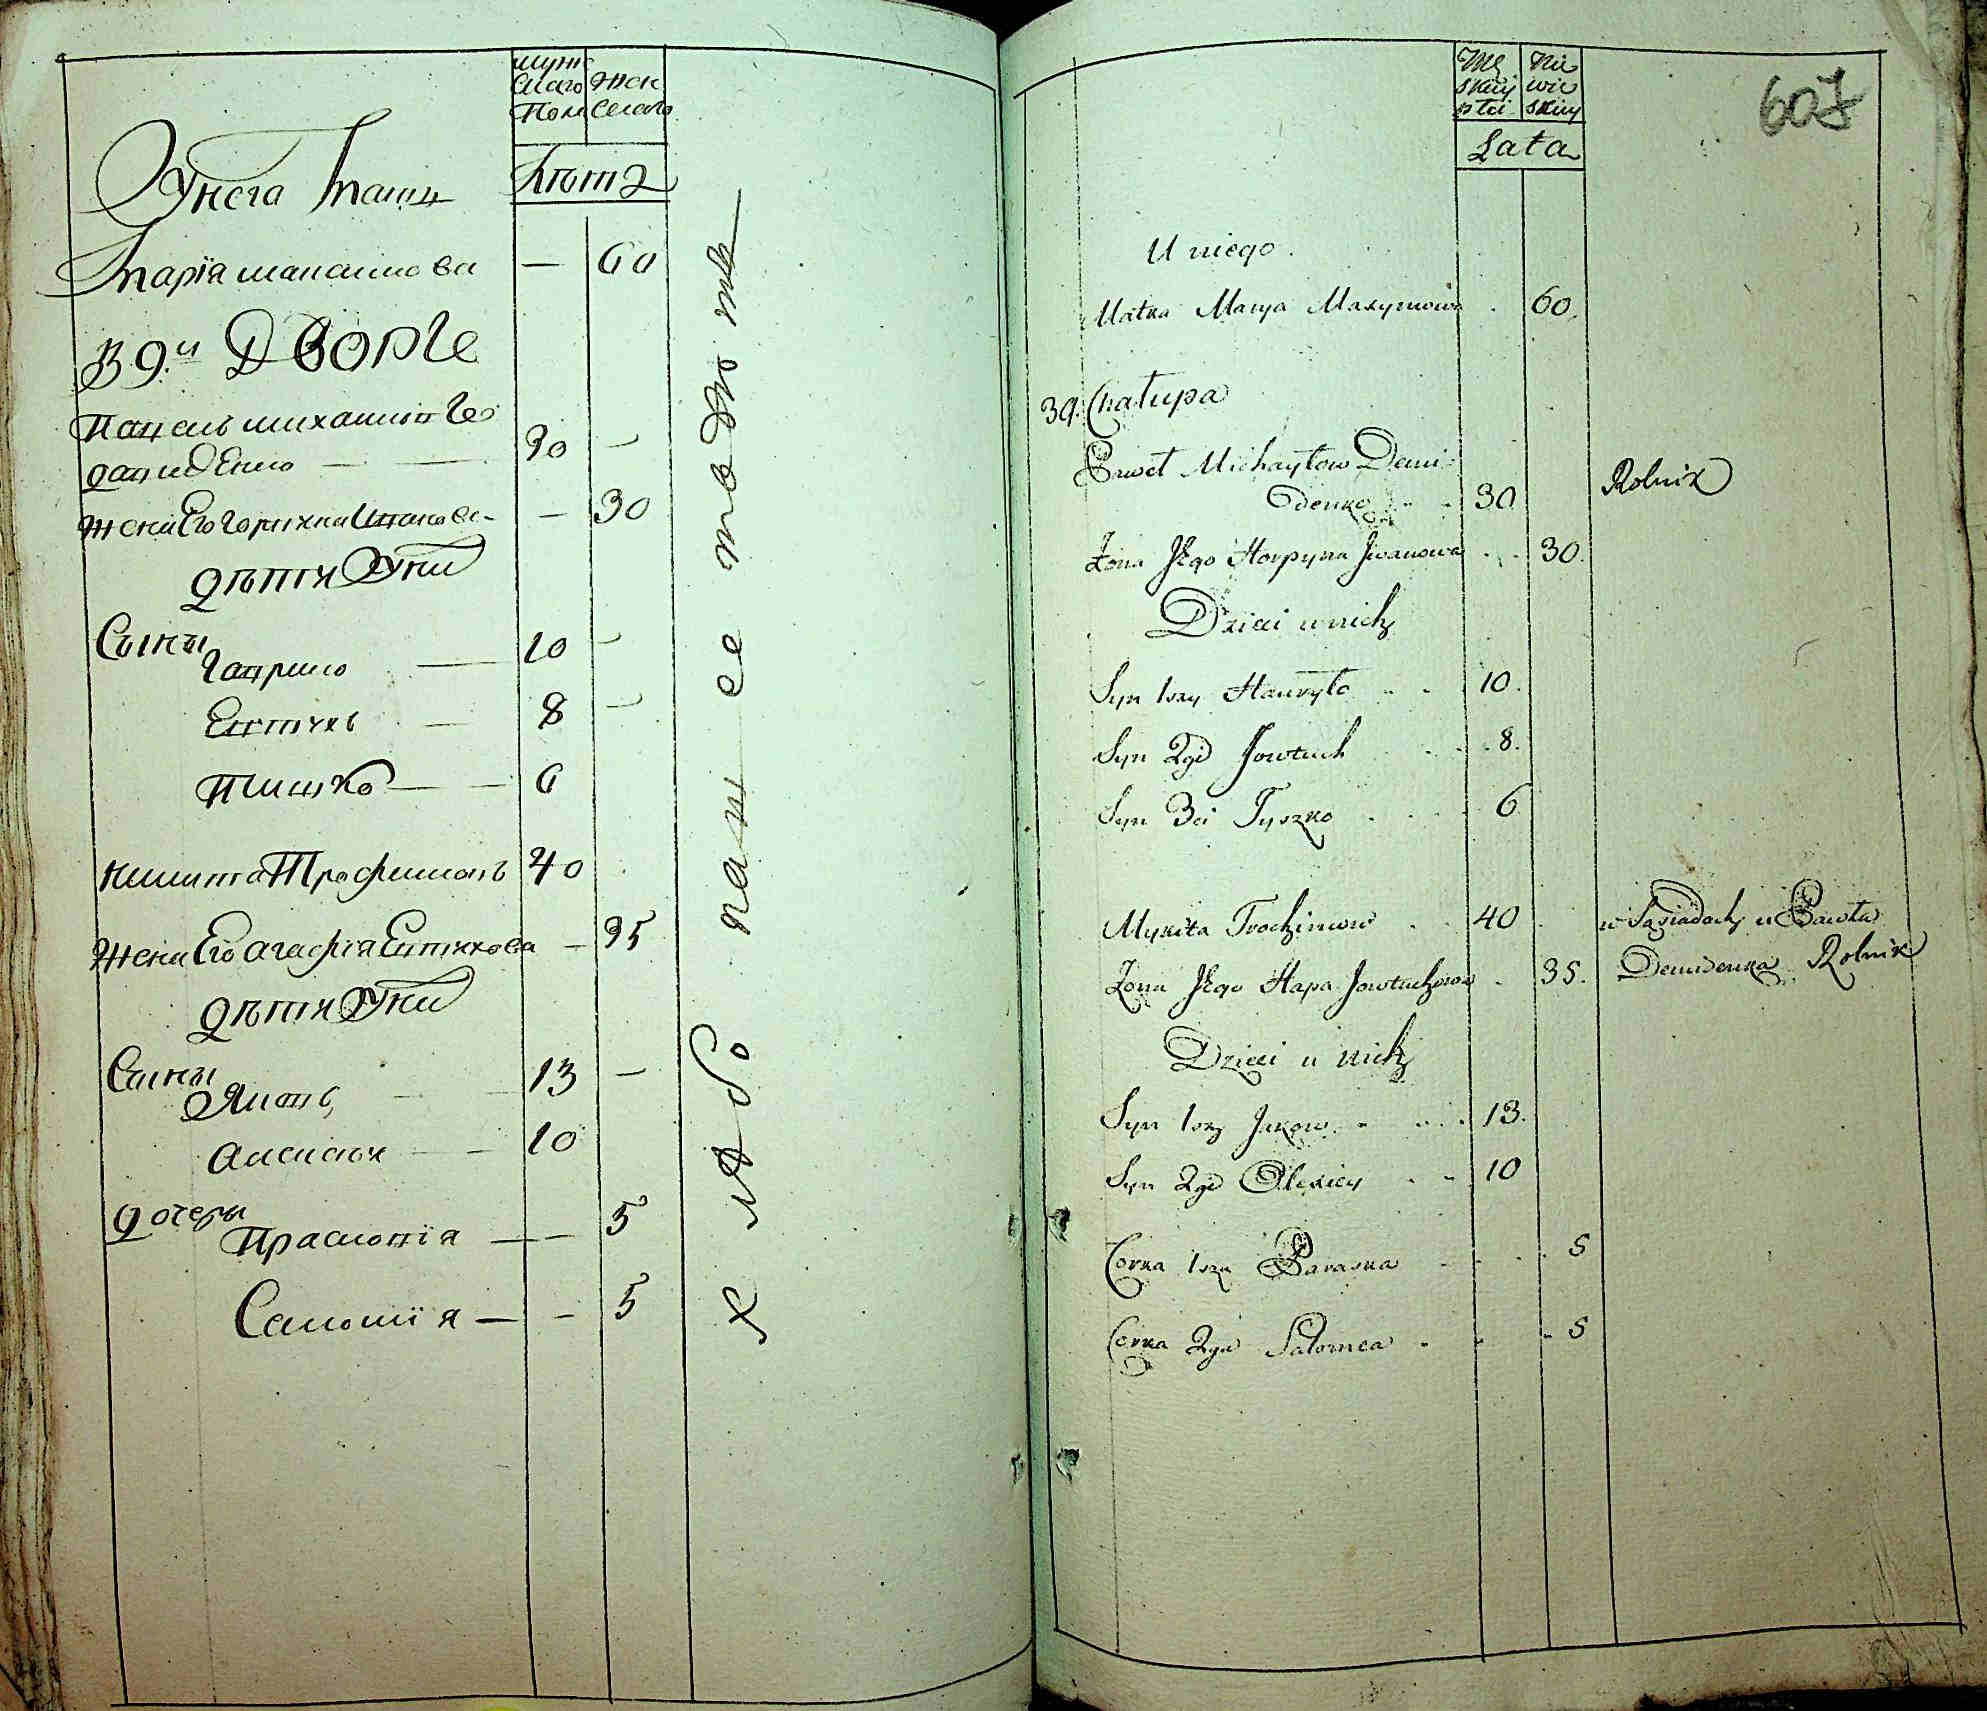 мужскаго пола
женскаго
Лѣтъ
У него мать
Марїя Максимова — 60
В 9й Дворѣ
Павелъ Михайловъ Де
миденко — 30 —
Жена Его Горпина Иванова — 30
Дѣти У них
Сыны
Гаврило — 10 —
Евтухъ — 8 —
Тишко — 6
Микита Трофимовъ 40
Жена Его Агафія Евтихова — 35
Дѣти У них
Сыны
Яковъ — 13 —
Алексѣй — 10
Дочеры
Прасковїя — 5
Саломїя — 5
хлѣбопашествомъ
Męskiey płci
Niewieskiey
Lata
607
U niego
Matka Marya Maxymowa . 60.
39. Chałupa
Paweł Michayłow Demi-
denko . . 30 Rolnik
Żona Jego Horpyna Jwanowa . . 30.
Dzieci u nich
Syn 1szy Hawryło . . 10.
Syn 2gi Jowtuch . . . 8.
Syn 3ci Tyszko . . . 6
Mykita Trochimow . . 40 w Sąsiadach u Pawła
Żona Jego Hapa Jowtuchowa . 35. Demidenka Rolnik
Dzieci u nich
Syn 1szy Jakow . . . 13.
Syn 2gi Olexiey . . 10
Corka 1sza Paraska . . . 5
Corka 2ga Salomea . . . 5